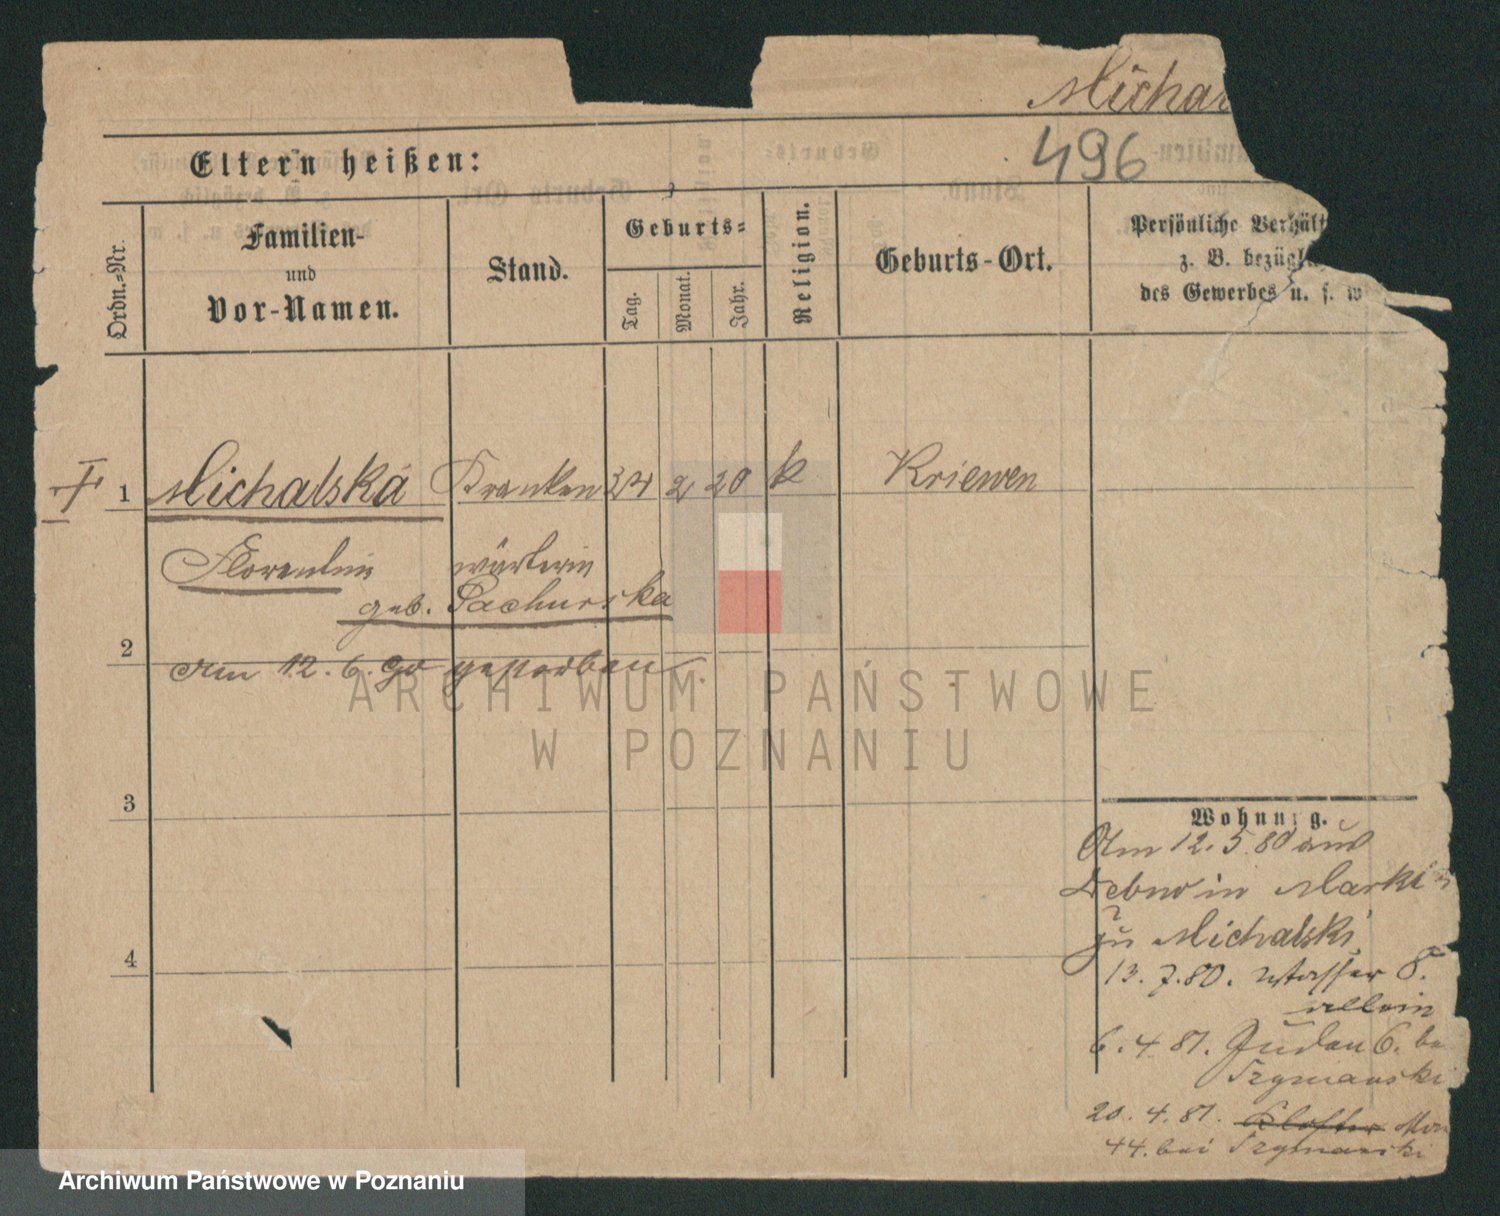 Michal
496
Eltern heißen:
Ordn.-Nr.
Familien-
und
Vor-Namen.
Stand.
Geburts-
Tag.
Monat.
Jahr.
Religion.
Geburts-Ort.
Persönliche Verhält
z. B. bezügl
des Gewerbes u. s. w
1 Michalska Kranken 24 2 20 k Kriewen
Florentine wärterin
geb. Pachurska
2
am 12. 6. 90 gestorben.
3
4
Wohnung.
Am 12. 5. 80 aus
in Markt
zu Michalski
13. 7. 80. Wasser 8.
allein
6. 4. 81. Juden 6. be
Szymanski
20. 4. 81. Kloster
44. bei Szymanski
ARCHIWUM PAŃSTWOWE
W POZNANIU
Archiwum Państwowe w Poznaniu